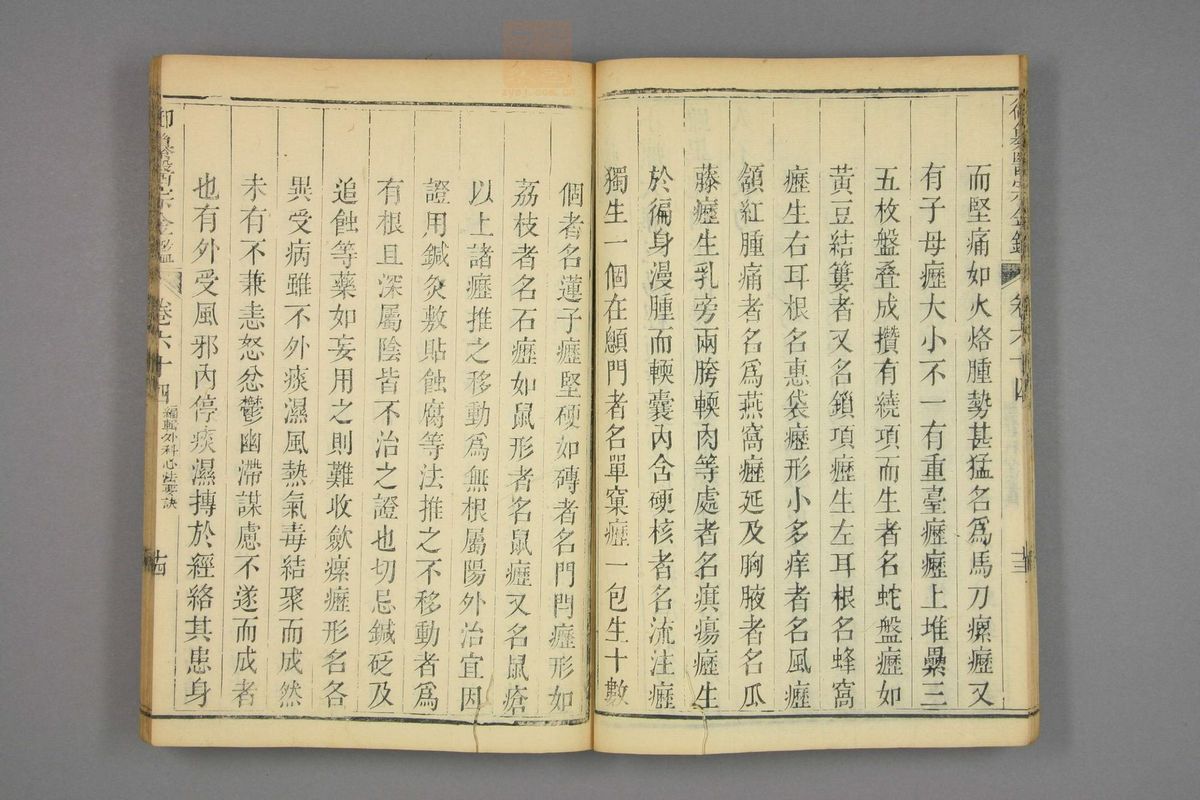 而堅痛如火烙腫勢甚猛名爲馬刀瘰癧又
有子母癧大小不一有重臺癧癧上堆纍三
五枚盤叠成攢有繞項而生者名蛇盤癧如
黃豆結簍者又名鎖項癧生左耳根名蜂窩
癧生右耳根名惠袋癧形小多痒者名風癧
頷紅腫痛者名爲燕窩癧延及胸腋者名瓜
藤癧生乳旁兩胯輭肉等處者名㾕瘍癧生
於徧身漫腫而輭囊內含硬核者名流注癧
獨生一個在顖門者名單窠癧一包生十數
卷六十四
御纂醫宗金鑑
卷六十四
編輯外科心法要訣
個者名蓮子癧堅硬如磚者名門閂癧形如
荔枝者名石癧如鼠形者名鼠癧又名鼠瘡
以上諸癧推之移動爲無根屬陽外治宜因
證用鍼灸敷貼蝕腐等法推之不移動者爲
有根且深屬陰皆不治之證也切忌鍼砭及
追蝕等藥如妄用之則難收斂瘰癧形名各
異受病雖不外痰濕風熱氣毒結聚而成然
未有不兼恚怒忿鬱幽滯謀慮不遂而成者
也有外受風邪內停痰濕搏於經絡其患身